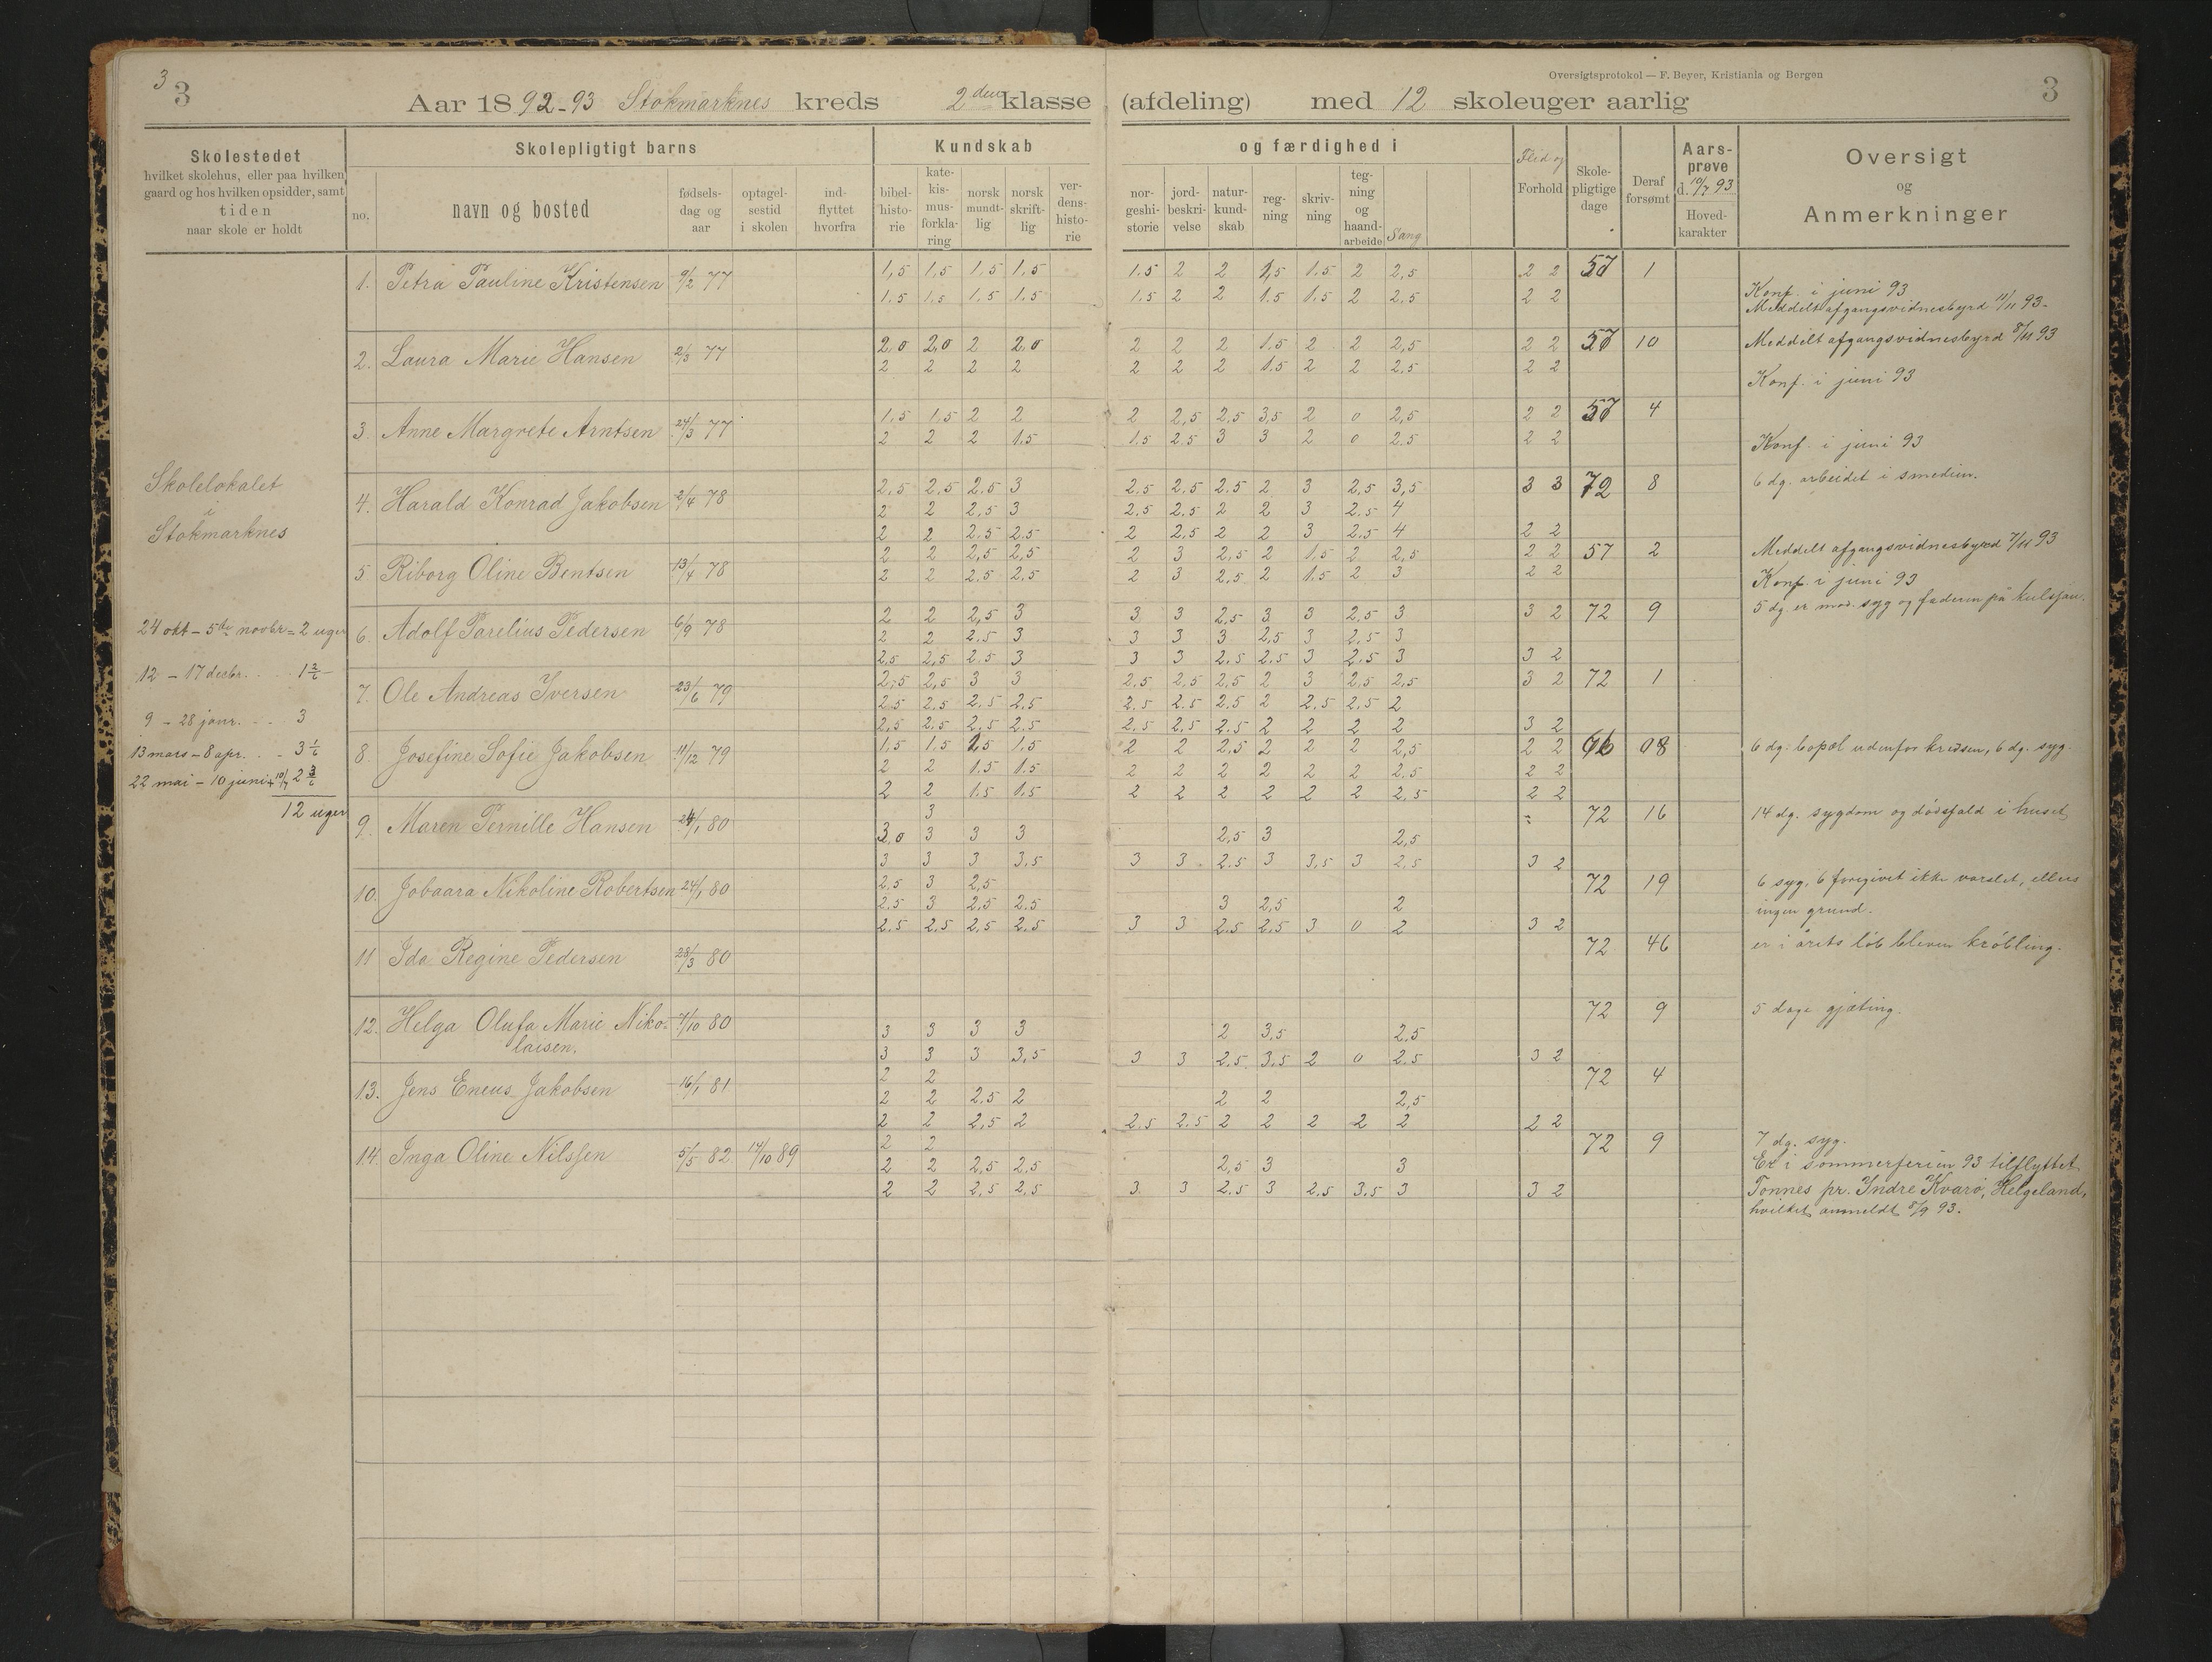 3
3
Oversigtsprotokol — F. Beyer, Kristiania og Bergen
3
Aar 1892-93 Stokmarknes kreds 2den klasse (afdeling) med 12 skoleuger aarlig
Skolestedet
hvilket skolehus, eller paa hvilken
gaard og hos hvilken opsidder, samt
tiden
naar skole er holdt
Skolepligtigt barns
no.
navn og bosted
fødsels-
dag og
aar
optagel-
sestid
i skolen
ind-
flyttet
hvorfra
Kundskab
bibel-
histo-
rie
kate-
kis-
mus-
forkla-
ring
norsk
mundt-
lig
norsk
skrift-
lig
ver-
dens-
histo-
rie
og færdighed i
nor-
geshi-
storie
jord-
beskri-
velse
natur-
kund-
skab
reg-
ning
skriv-
ning
teg-
ning
og
haand-
arbeide
Sang
Flid og
Forhold
Skole-
pligtige
dage
Deraf
forsømt
Aars-
prøve
d. 10/7 93
Hoved-
karakter
Oversigt
og
Anmerkninger
Skolelokalet
i
Stokmarknes
24 okt – 5te novbr = 2 uger
12 – 17 desbr. . . 1 2/6
9 – 28 janr. - - 3
13 mars – 8 apr. . . 3 1/6
22 mai – 10 juni + 10/7 2 3/6
12 uger
1. Petra Pauline Kristensen 9/2 77 1,5 1,5 1,5 1,5 1.5 2 2 1,5 1.5 2 2,5 2 2 57 1
1.5 1.5 1.5 1.5 1.5 2 2 1.5 1.5 2 2,5 2 2 Konf. i juni 93
Meddelt afgangsvidnesbyrd 11/11 93-
2. Laura Marie Hansen 2/3 77 2,0 2,0 2 2,0 2 2 2 1.5 2 2 2,5 2 2 57 10 Meddelt afgangsvidnesbyrd 8/11 93
2 2 2 2 2 2 2 1.5 2 2 2.5 2 2
Konf. i juni 93
3. Anne Margrete Arntsen 24/3 77 1,5 1,5 2 2 2 2,5 2,5 3,5 2 0 2,5 2 2 57 4
2 2 2 1.5 1.5 2.5 3 3 2 0 2.5 2 2 Konf. i juni 93
4. Harald Konrad Jakobsen 2/4 78 2,5 2,5 2,5 3 2,5 2,5 2,5 2 3 2,5 3,5 3 3 72 8 6 dg. arbeidet i smedien.
2 2 2,5 3 2,5 2.5 2 2 3 2.5 4
2 2 2.5 2.5 2 2,5 2 2 3 2.5 4 2 2
5 Riborg Oline Bentsen 13/4 78 2 2 2,5 2,5 2 3 2,5 2 1.5 2 2,5 2 2 57 2 Meddelt afgangsvidnesbyrd 7/11 93
2 2 2.5 2,5 2 3 2,5 2 1.5 2 3 2 2 Konf. i juni 93
6. Adolf Parelius Pedersen 6/9 78 2 2 2,5 3 3 3 2,5 3 3 2,5 3 3 2 72 9 5 dg. er mod. syg og faderen på
2 2 2.5 3 3 3 3 2,5 3 2,5 3
2,5 2,5 2.5 3 3 3 2.5 2.5 3 2.5 3 3 2
7. Ole Andreas Iversen 23/6 79 2,5 2,5 3 3 2.5 2,5 2,5 2 3 2,5 2,5 3 2 72 1
2.5 2,5 2,5 2,5 2.5 2.5 2.5 2 2,5 2,5 2
2,5 2,5 2,5 2.5 2.5 2,5 2.5 2 2 2 2 3 2
8. Josefine Sofie Jakobsen 11/12 79 1,5 1,5 1,5 2 2 2,5 2 2 2 2,5 2 2 6 dg. udenfor kredsen, 6 dg. syg.
2 2 1.5 1.5 2 2 2 2 2 2 2.5 2 2
2 2 1.5 1.5 2 2 2 2 2 2 2,5 2 2
9. Maren Pernille Hansen 24/1 80 3 72 16 14 dg. sygdom og dødsfald i huset
3,0 3 3 3 2,5 3 2,5
3 3 3 3,5 3 3 2.5 3 3,5 3 2,5 3 2
10. Jobaara Nikoline Robertsen 24/1 80 2,5 3 2,5 72 19 6 syg, 6 foregivet ikke varslet, ellers
2.5 3 2,5 2.5 3 2,5 2 ingen grund.
2.5 2.5 2,5 2.5 3 3 2.5 2.5 3 0 2 3 2
11 Ida Regine Pedersen 28/3 80 72 46 er i årets løb bleven krøbling.
12. Helga Olufa Marie Niko- 7/10 80 72 9 5 dage gjæting.
laisen. 3 3 3 3 2 3,5 2.5
3 3 3 3,5 3 3 2.5 3,5 2 0 2.5 3 2
13. Jens Eneus Jakobsen 16/1 81 2 2 72 4
2 2 2.5 2 2 2 2,5
2 2 2,5 2 2.5 2.5 2 2 2 2 2 2 2
14. Inga Oline Nilssen 5/5 82 14/10 89 2 2 72 9 7 dg. syg.
2 2 2,5 2,5 2,5 3 3 Er i sommerferien 93 tilflyttet
2 2 2,5 2,5 3 3 2.5 3 2.5 3.5 3 3 2 Tonnes pr. Indre Kvarø, Helgeland,
hvilket anmeldt 5/9 93.